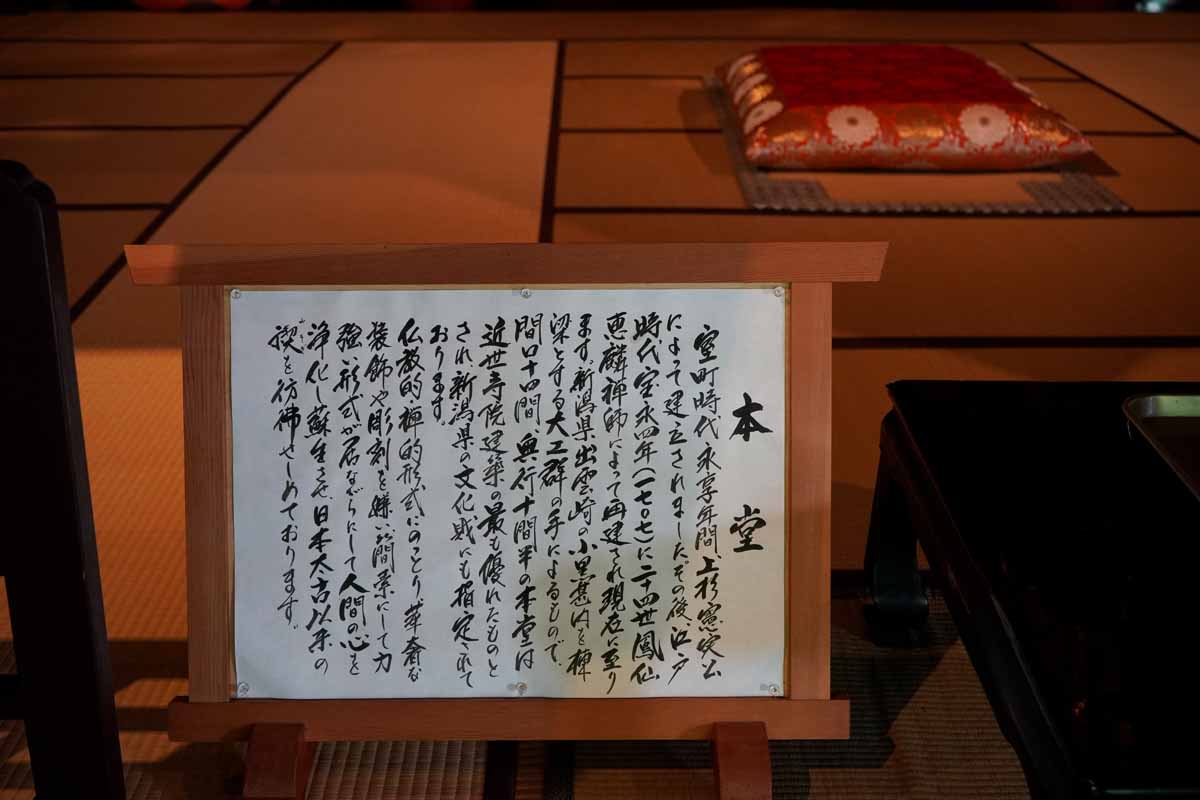 本堂
室町時代永享年間、上杉憲実公
によって建立されました。その後江戸
時代宝永四年(一七〇七)に二十四世鳳仙
恵麟禅師によって再建され現在に至り
ます。新潟県出雲崎の小黒甚内を棟
梁とする大工群の手によるもので、
間口十四間、奥行十間半の本堂は
近世寺院建築の最も優れたものと
され新潟県の文化財にも指定されて
おります。
仏教的禅的形式にのっとり華奢な
装飾や彫刻を嫌い簡素にして力
強い形式が居ながらにして人間の心を
浄化し蘇生させ、日本太古以来の
禊を彷彿せしめております。